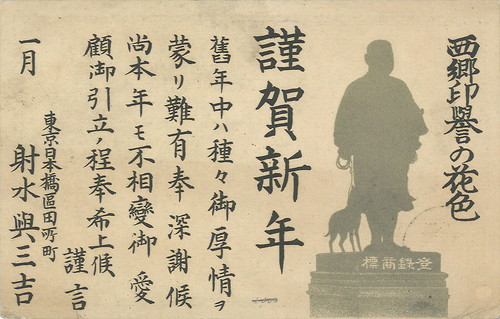 西郷印譽の花色
登録商標
謹賀新年
舊年中ハ種々御厚情ヲ
蒙リ難有奉深謝候
尚本年モ不相變御愛
顧御引立ノ程奉希上候
謹言
一月
東京日本橋區田所町
射水與三吉